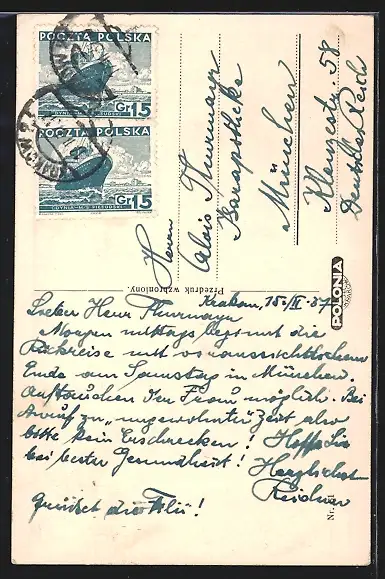 POCZTA POLSKA
Gr 15
GDYNIA-M/S PIŁSUDSKI
POCZTA POLSKA
Gr 15
GDYNIA-M/S PIŁSUDSKI
Herrn
Alois Thurmayr
München
Klenzestr. 58
Deutsches Reich
Przedruk wzbroniony.
POLONIA
KRAKÓW
Krakau, 15. II. 37
Lieber Herr Thurmayr
Morgen mittags beginnt die
Rückreise mit voraussichtlichem
Ende am Samstag in München.
Auftauchen der Frau möglich. Bei
Anruf zu "ungewohnter" Zeit also
bitte kein Erschrecken! Hoffe Sie
bei bester Gesundheit! Herzlichst
grüßet die
Nr.